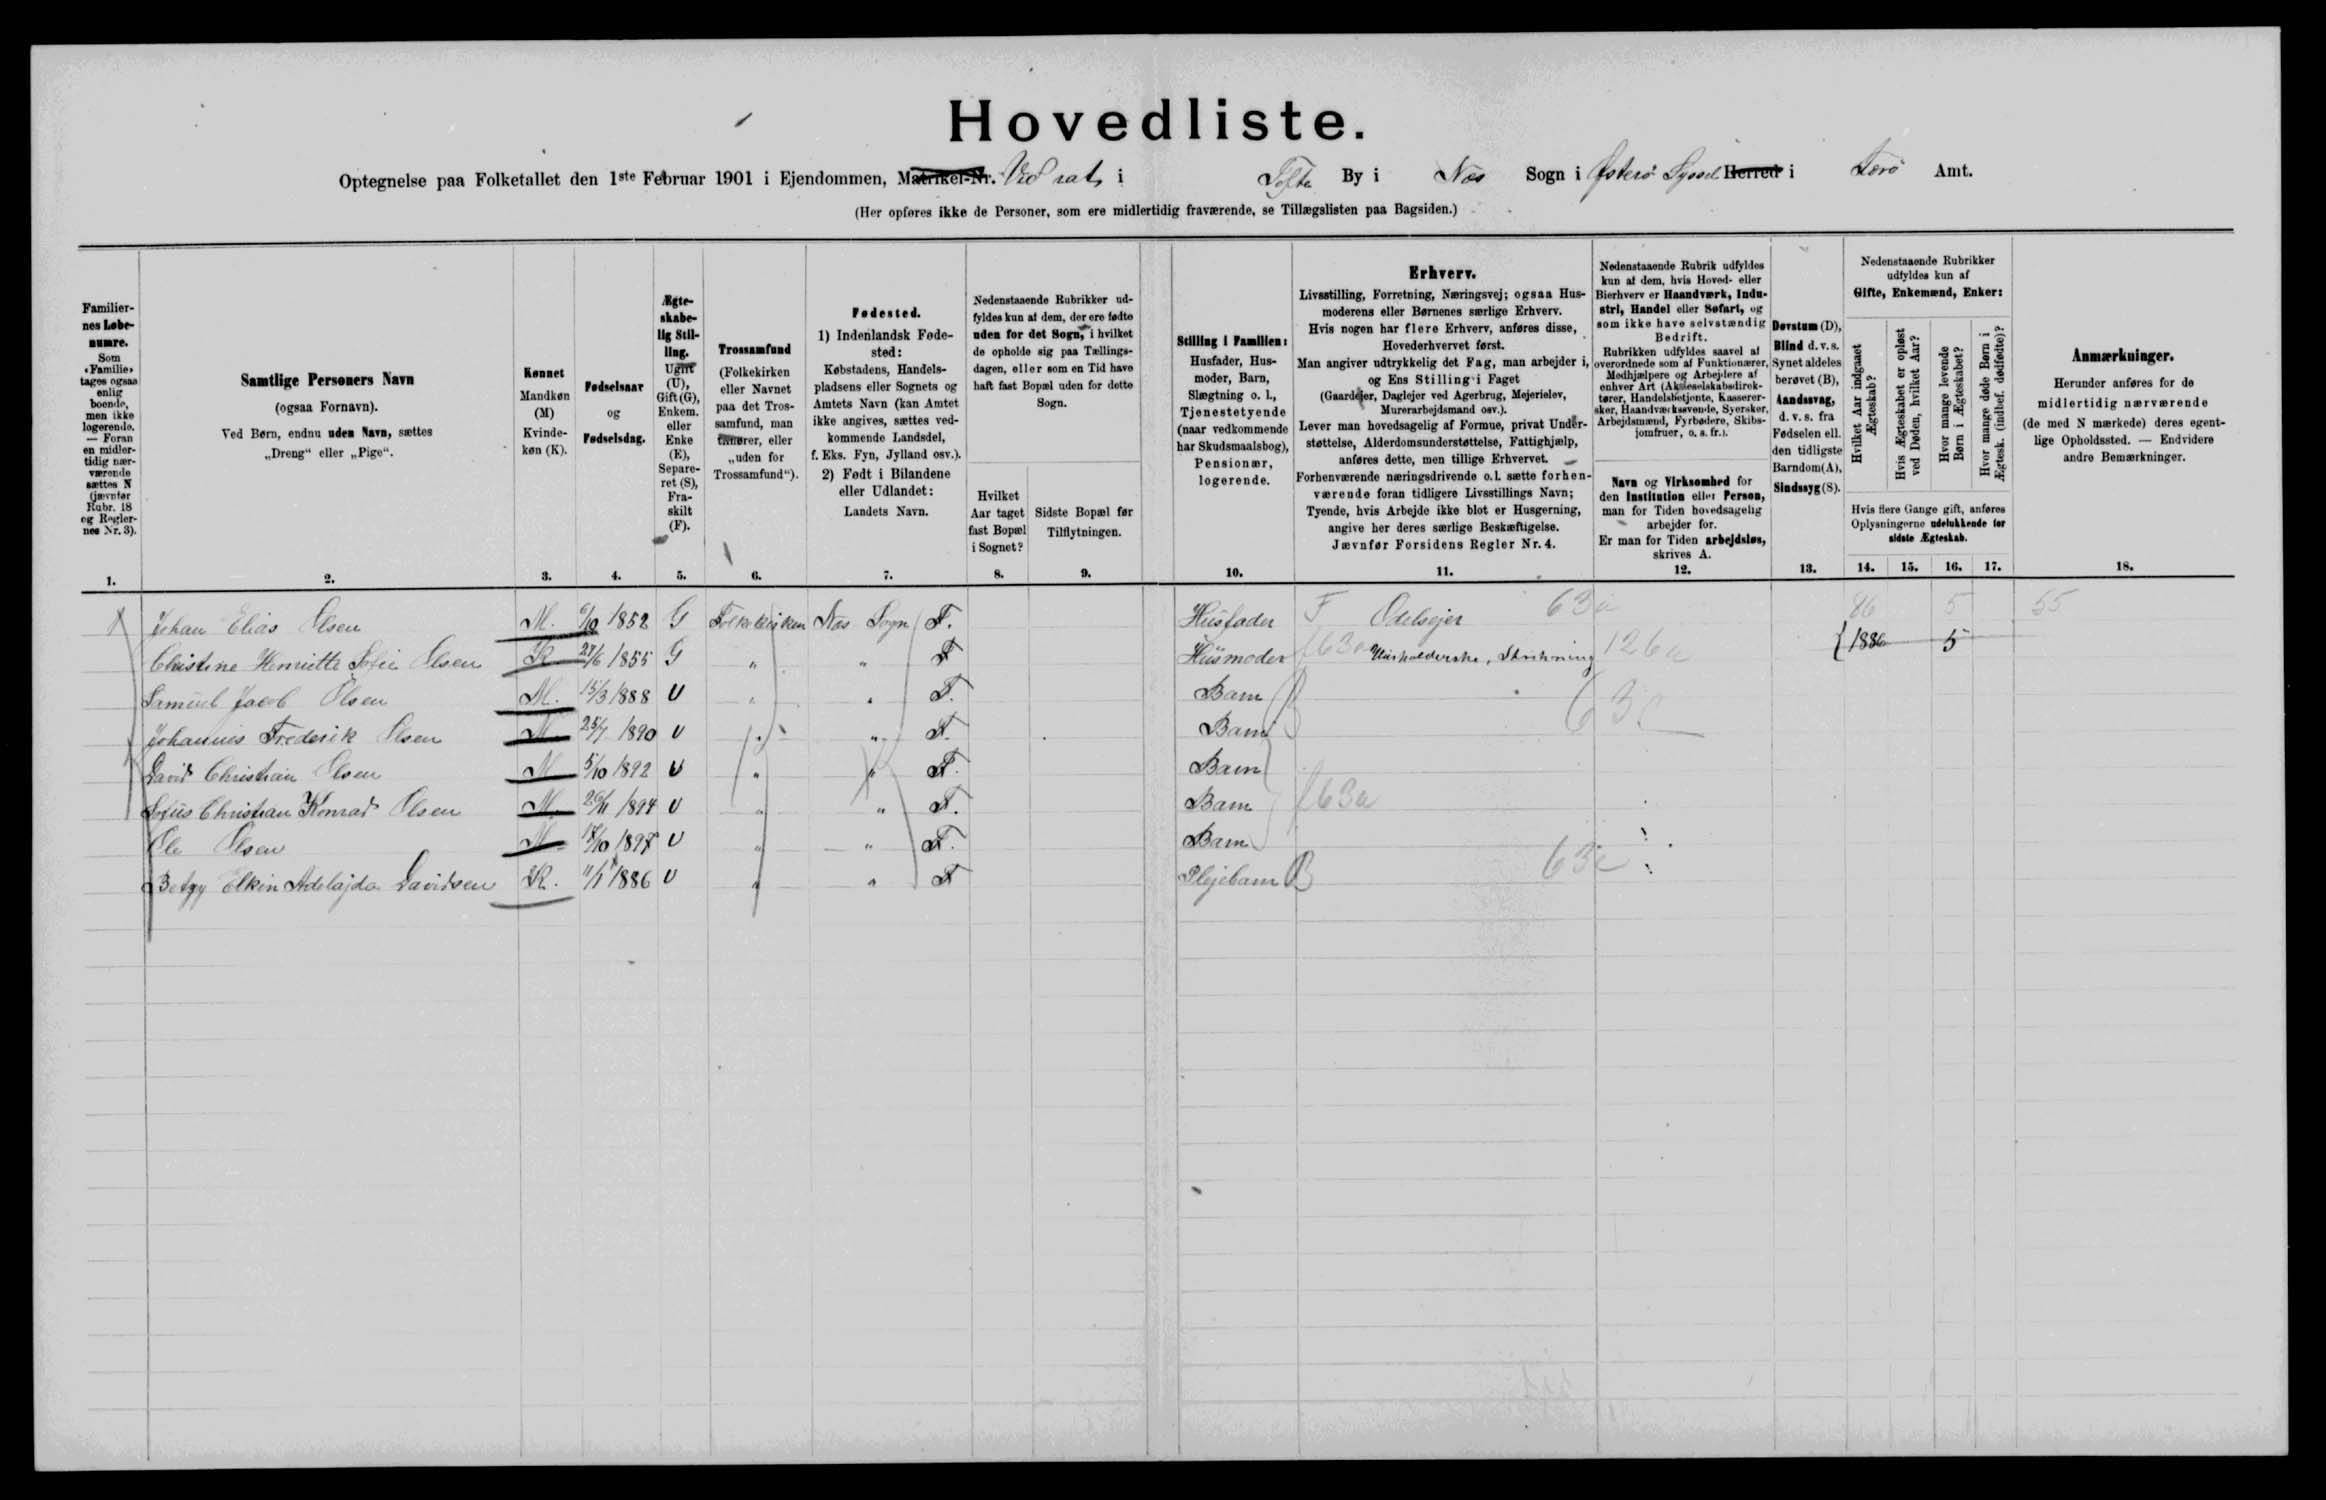 Hovedliste.
Optegnelse paa Folketallet den 1ste Februar 1901 i Ejendommen, Matrikel-Nr. i Tofte By i Næs Sogn i Østerø Syssel Herred i Færø Amt.
(Her opføres ikke de Personer, som ere midlertidig fraværende, se Tillægslisten paa Bagsiden.)
Familier-
nes Løbe-
numre.
Som
«Familie»
tages ogsaa
enlig
boende,
men ikke
logerende.
— Foran
en midler-
tidig nær-
værende
sættes N
(jævnfør
Rubr. 18
og Regler-
nes Nr. 3).
1.
Samtlige Personers Navn
(ogsaa Fornavn).
Ved Børn, endnu uden Navn, sættes
„Dreng“ eller „Pige“.
2.
Kønnet
Mandkøn
(M)
Kvinde-
køn (K).
3.
Fødselsaar
og
Fødselsdag.
4.
Ægte-
skabe-
lig Stil-
ling.
Ugift
(U),
Gift (G),
Enkem.
eller
Enke
(E),
Separe-
ret (S),
Fra-
skilt
(F).
5.
Trossamfund
(Folkekirken
eller Navnet
paa det Tros-
samfund, man
tilhører, eller
„uden for
Trossamfund“).
6.
Fødested.
1) Indenlandsk Føde-
sted:
Købstadens, Handels-
pladsens eller Sognets og
Amtets Navn (kan Amtet
ikke angives, sættes ved-
kommende Landsdel,
f. Eks. Fyn, Jylland osv.).
2) Født i Bilandene
eller Udlandet:
Landets Navn.
7.
Nedenstaaende Rubrikker ud-
fyldes kun af dem, der ere fødte
uden for det Sogn, i hvilket
de opholde sig paa Tællings-
dagen, eller som en Tid have
haft fast Bopæl uden for dette
Sogn.
Hvilket
Aar taget
fast Bopæl
i Sognet?
8.
Sidste Bopæl før
Tilflytningen.
9.
Stilling i Familien:
Husfader, Hus-
moder, Barn,
Slægtning o. l.,
Tjenestetyende
(naar vedkommende
har Skudsmaalsbog),
Pensionær,
logerende.
10.
Erhverv.
Livsstilling, Forretning, Næringsvej; ogsaa Hus-
moderens eller Børnenes særlige Erhverv.
Hvis nogen har flere Erhverv, anføres disse,
Hovederhvervet først.
Man angiver udtrykkelig det Fag, man arbejder i,
og Ens Stilling i Faget
(Gaardejer, Daglejer ved Agerbrug, Mejerielev,
Murerarbejdsmand osv.).
Lever man hovedsagelig af Formue, privat Under-
støttelse, Alderdomsunderstøttelse, Fattighjælp,
anføres dette, men tillige Erhvervet.
Forhenværende næringsdrivende o. l. sætte forhen-
værende foran tidligere Livsstillings Navn;
Tyende, hvis Arbejde ikke blot er Husgerning,
angive her deres særlige Beskæftigelse.
Jævnfør Forsidens Regler Nr. 4.
11.
Nedenstaaende Rubrik udfyldes
kun af dem, hvis Hoved- eller
Bierhverv er Haandværk, Indu-
stri, Handel eller Søfart, og
som ikke have selvstændig
Bedrift.
Rubrikken udfyldes saavel af
overordnede som af Funktionærer,
Medhjælpere og Arbejdere af
enhver Art (Aktieselskabsdirek-
tører, Handelsbetjente, Kasserer-
sker, Haandværkssvende, Syersker,
Arbejdsmænd, Fyrbødere, Skibs-
jomfruer, o. s. fr.).
Navn og Virksomhed for
den Institution eller Person,
man for Tiden hovedsagelig
arbejder for.
Er man for Tiden arbejdsløs,
skrives A.
12.
Døvstum (D),
Blind d. v. s.
Synet aldeles
berøvet (B),
Aandssvag,
d. v. s. fra
Fødselen ell.
den tidligste
Barndom (A),
Sindssyg (S).
13.
Nedenstaaende Rubrikker
udfyldes kun af
Gifte, Enkemænd, Enker:
Hvilket Aar indgaaet
Ægteskab?
Hvis Ægteskabet er opløst
ved Døden, hvilket Aar?
Hvor mange levende
Børn i Ægteskabet?
Hvor mange døde Børn i
Ægtesk. (indbef. dødfødte)?
Hvis flere Gange gift, anføres
Oplysningerne udelukkende for
sidste Ægteskab.
14. 15. 16. 17.
Anmærkninger.
Herunder anføres for de
midlertidig nærværende
(de med N mærkede) deres egent-
lige Opholdssted. — Endvidere
andre Bemærkninger.
18.
Johan Elias Olsen M. 6/10 1852 G Folkekirken Næs Sogn F. Husfader F Odelsejer 63a 86 5 55
Christine Henriette Sofie Olsen K 24/6 1855 G " " F Husmoder f63a Husholderske, Strikning 126a { 1886 5
Samuel Jacob Olsen M. 15/3 1888 U " " F. Barn B
Johannes Frederik Olsen M 25/7 1890 U " " F. Barn
David Christian Olsen M 5/10 1892 U " " F. Barn
Sofus Christian Konrad Olsen M. 26/11 1894 U " " F. Barn f63a
Ole Olsen M 18/10 1897 U " " F. Barn
Betzy Elkin Adelajda Davidsen K. 11/1 1886 U " " F Plejebarn B